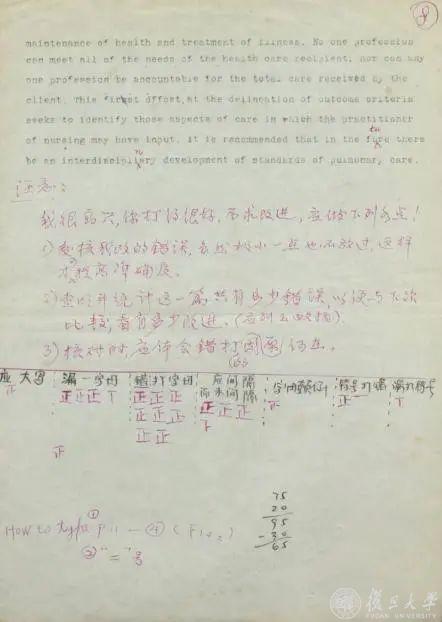 8
maintenance of health and treatment of illness. No one profession
can meet all of the needs of the health care recipient, nor can any
one profession be accountable for the total care received by the
client. This first effort,at the delineation of outcome criteria
seeks to identify those aspects of care in which the practitioner
of nursing may have input. it is recommended that in the fure there
tu
be an interdisciplinery development of standards of pulmonary care.
注意:
我很高兴,你打得很好,不求改进,应做下列各点!
1) 要核我改的错误,
这样
才能提高准确度。
2) 查明并统计这一篇共有多少错误,以便与下次
比较看有多少改进。
3) 核对时,应体会错打的原因何在。
应大写 漏一字母 错打字母 应间隔 而未间隔 符号打错 漏打符号
正 正正正下 正正正 正正正 正正 正 正 下
How to type ① P11 — ④
② "="号
75
20
95
-30
65
復旦大學
FUDAN UNIVERSITY